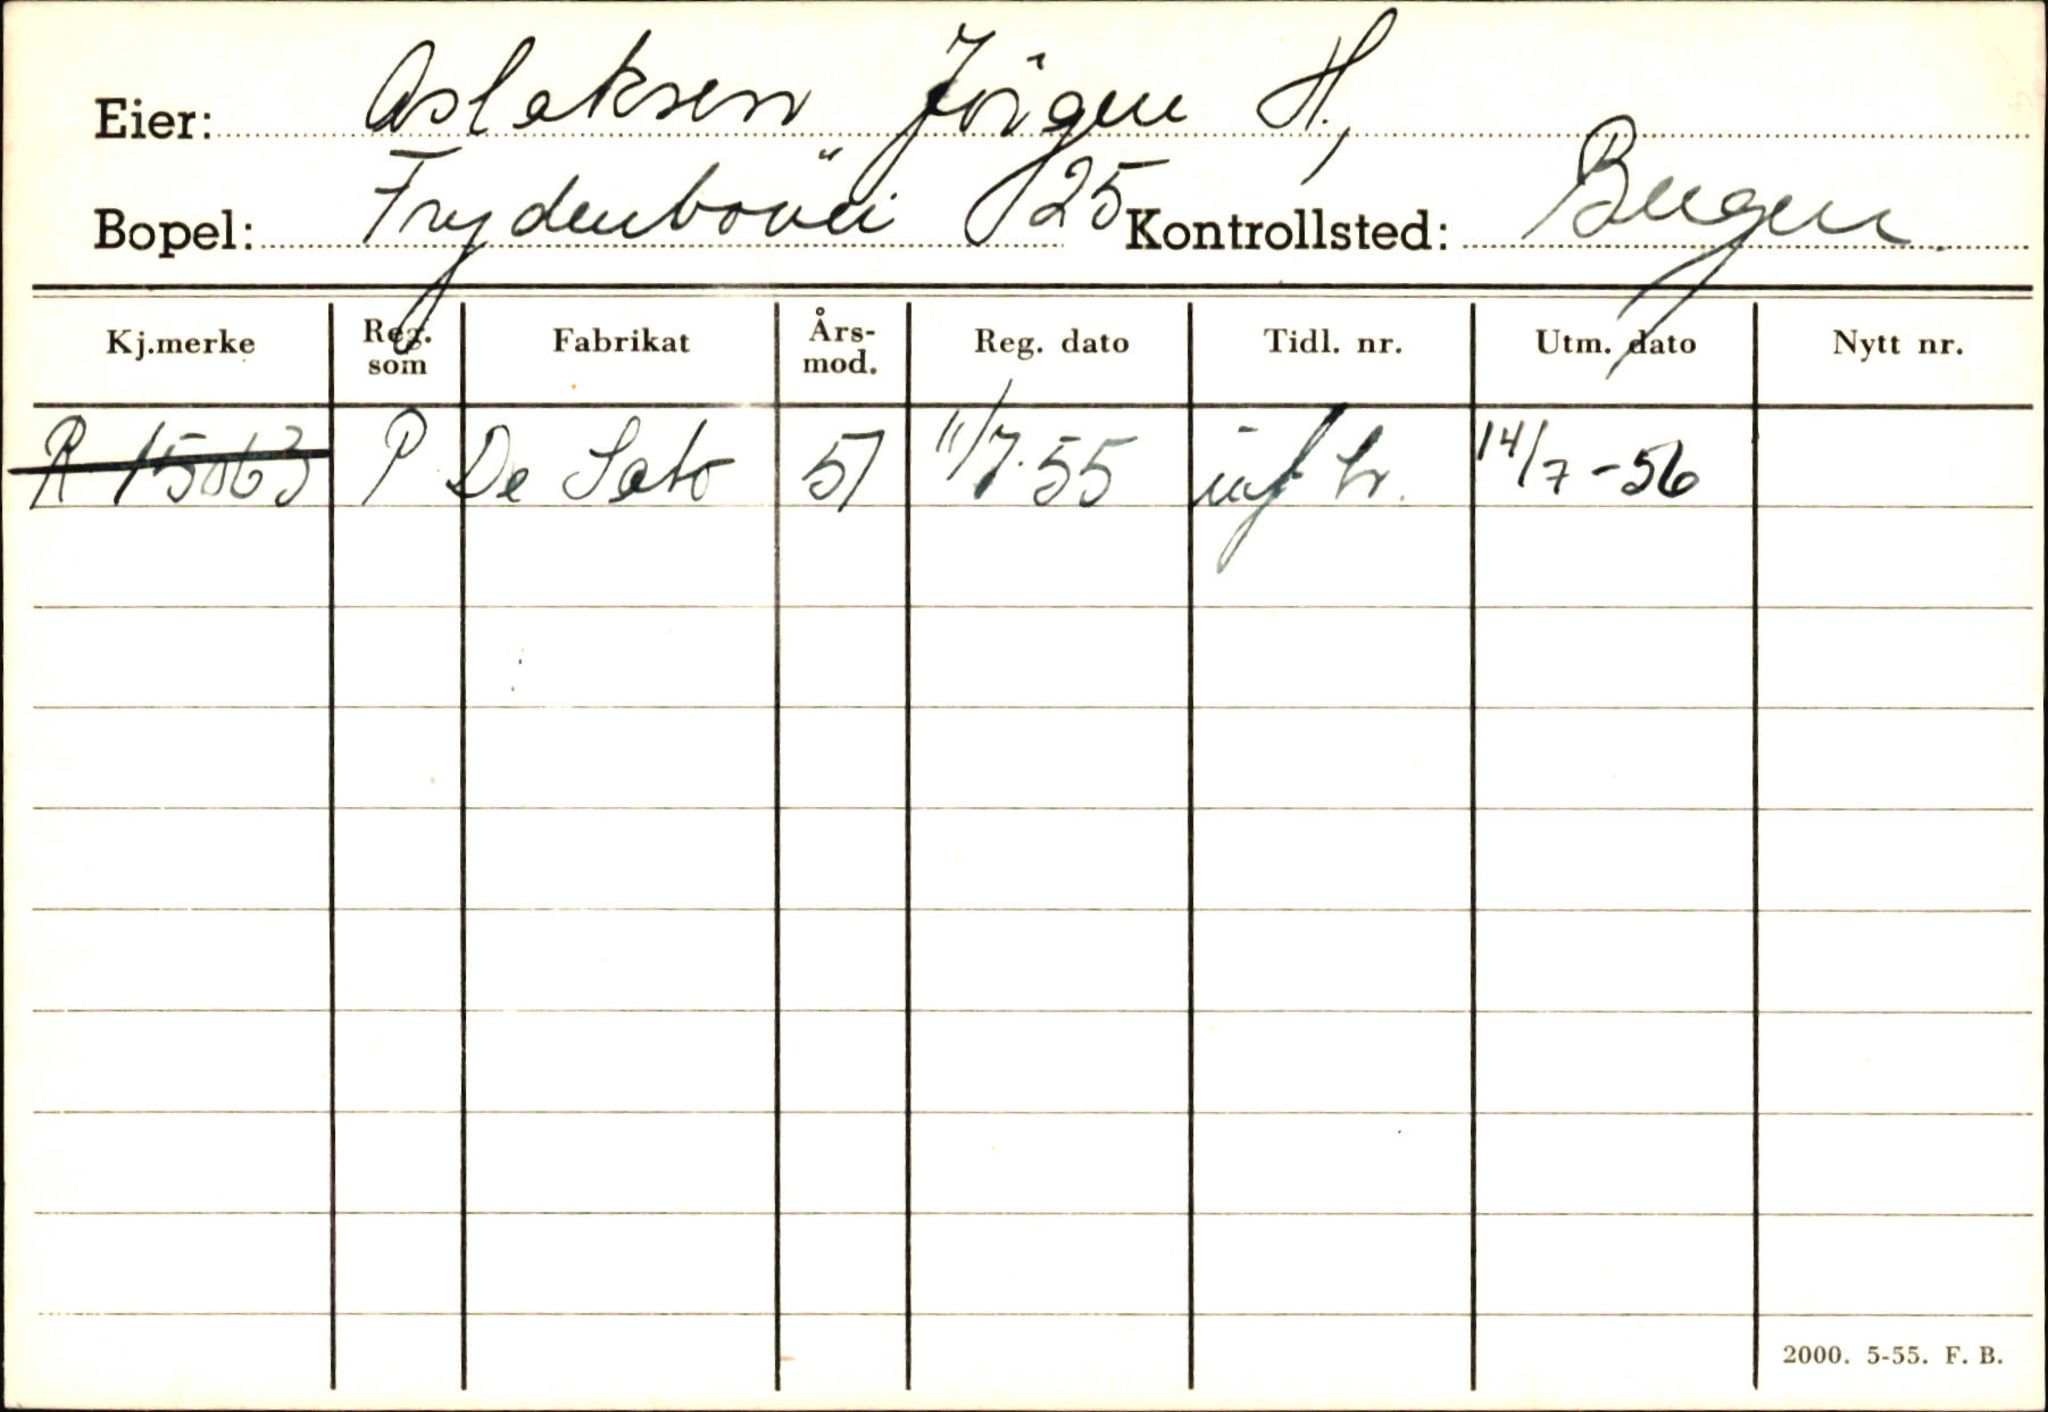 Eier: Aslaksen Jörgen H.,
Bopel: Frydenbövei 125 Kontrollsted: Bergen.
Kj.merke Reg. som Fabrikat Års-mod. Reg. dato Tidl. nr. Utm. dato Nytt nr.
R 15063 P De Soto 51 11/7.55 14/7-56
2000. 5-55. F. B.